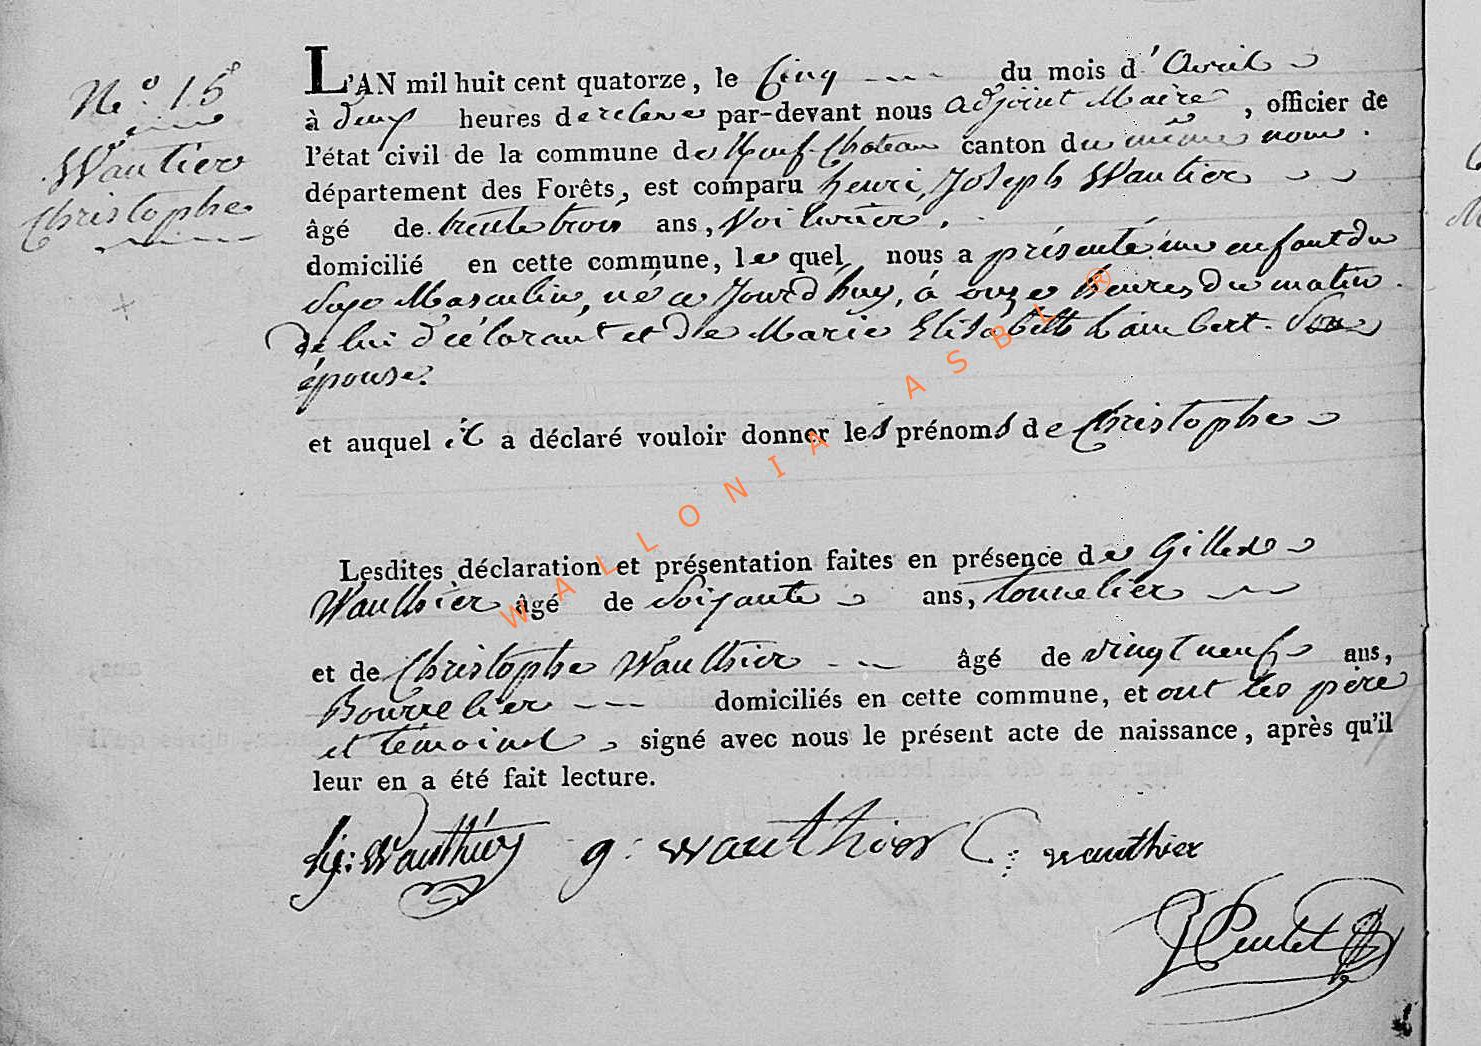 N.° 15
Wautier
Christophe
L'AN mil huit cent quatorze, le Cinq du mois d'Avril
à deux heures de relevé par-devant nous adjoint Maire, officier de
l'état civil de la commune de Neuf-Chateau canton du même nom.
département des Forêts, est comparu henri, Joseph Wautier
âgé de trente trois ans, Voiturier.
domicilié en cette commune, le quel nous a présenté un enfant du
Sexe Masculin, né ce Jourd'huy, à onze heures du matin.
de lui déclarant et de Marie Elisabeth Lambert. Son
épouse.
et auquel il a déclaré vouloir donner les prénoms de Christophe
Lesdites déclaration et présentation faites en présence de Gilles
Wauthier âgé de Soixante ans, tonnelier
et de Christophe Wauthier âgé de vingt neuf ans,
Bourrelier domiciliés en cette commune, et ont les père
et témoins signé avec nous le présent acte de naissance, après qu'il
leur en a été fait lecture.
hj: Wauthier g: wauthier C: wauthier
WALLONIA ASBL ®